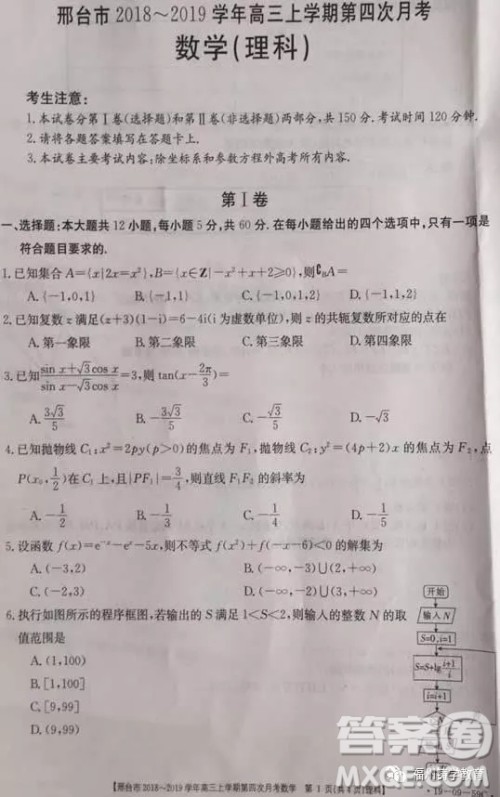 邢台市 2018～2019 学年高三上学期第四次月考
数学(理科)
考生注意:
1.本试卷分第Ⅰ卷(选择题)和第Ⅱ卷(非选择题)两部分,共 150 分.考试时间 120 分钟.
2.请将各题答案填写在答题卡上.
3.本试卷主要考试内容:除坐标系和参数方程外高考所有内容.
第Ⅰ卷
一、选择题:本大题共 12 小题,每小题 5 分,共 60 分.在每小题给出的四个选项中,只有一项是
符合题目要求的.
1.已知集合 A={x|2x=x²},B={x∈Z|-x²+x+2≥0},则∁BA=
A.{-1,0,1} B.{-1,1} C.{-1,0} D.{-1,0,2}
2.已知复数 z 满足(z+3)(1-i)=6-4i(i 为虚数单位),则 z 的共轭复数所对应的点在
A.第一象限 B.第二象限 C.第三象限 D.第四象限
3.已知(sin x+√3cos x)/(sin x-√3cos x)=3,则 tan(x-2π/3)=
A.3√3/5 B.-3√3/5 C.√3 D.-√3
4.已知抛物线 C₁:x²=2py(p>0)的焦点为 F₁,抛物线 C₂:y²=(4p+2)x 的焦点为 F₂,点
P(x₀,1/2)在 C₁ 上,且|PF₁|=3/4,则直线 F₁F₂ 的斜率为
A.-1/2 B.-1/3 C.-1/4 D.-1/5
5.设函数 f(x)=e⁻ˣ-eˣ-5x,则不等式 f(x²)+f(-x-6)<0 的解集为
A.(-3,2) B.(-∞,-3)∪(2,+∞)
C.(-2,3) D.(-∞,-2)∪(3,+∞)
6.执行如图所示的程序框图,若输出的 S 满足 1<S<2,则输入的整数 N 的取
值范围是
A.(1,100)
B.[1,100]
C.[9,99]
D.(9,99)
开始
输入 N
S=0,i=1
S=S+lg (i+1)/i
i=i+1
【邢台市 2018～2019 学年高三上学期第四次月考数学 第 1 页(共 4 页)理科】
答案圈